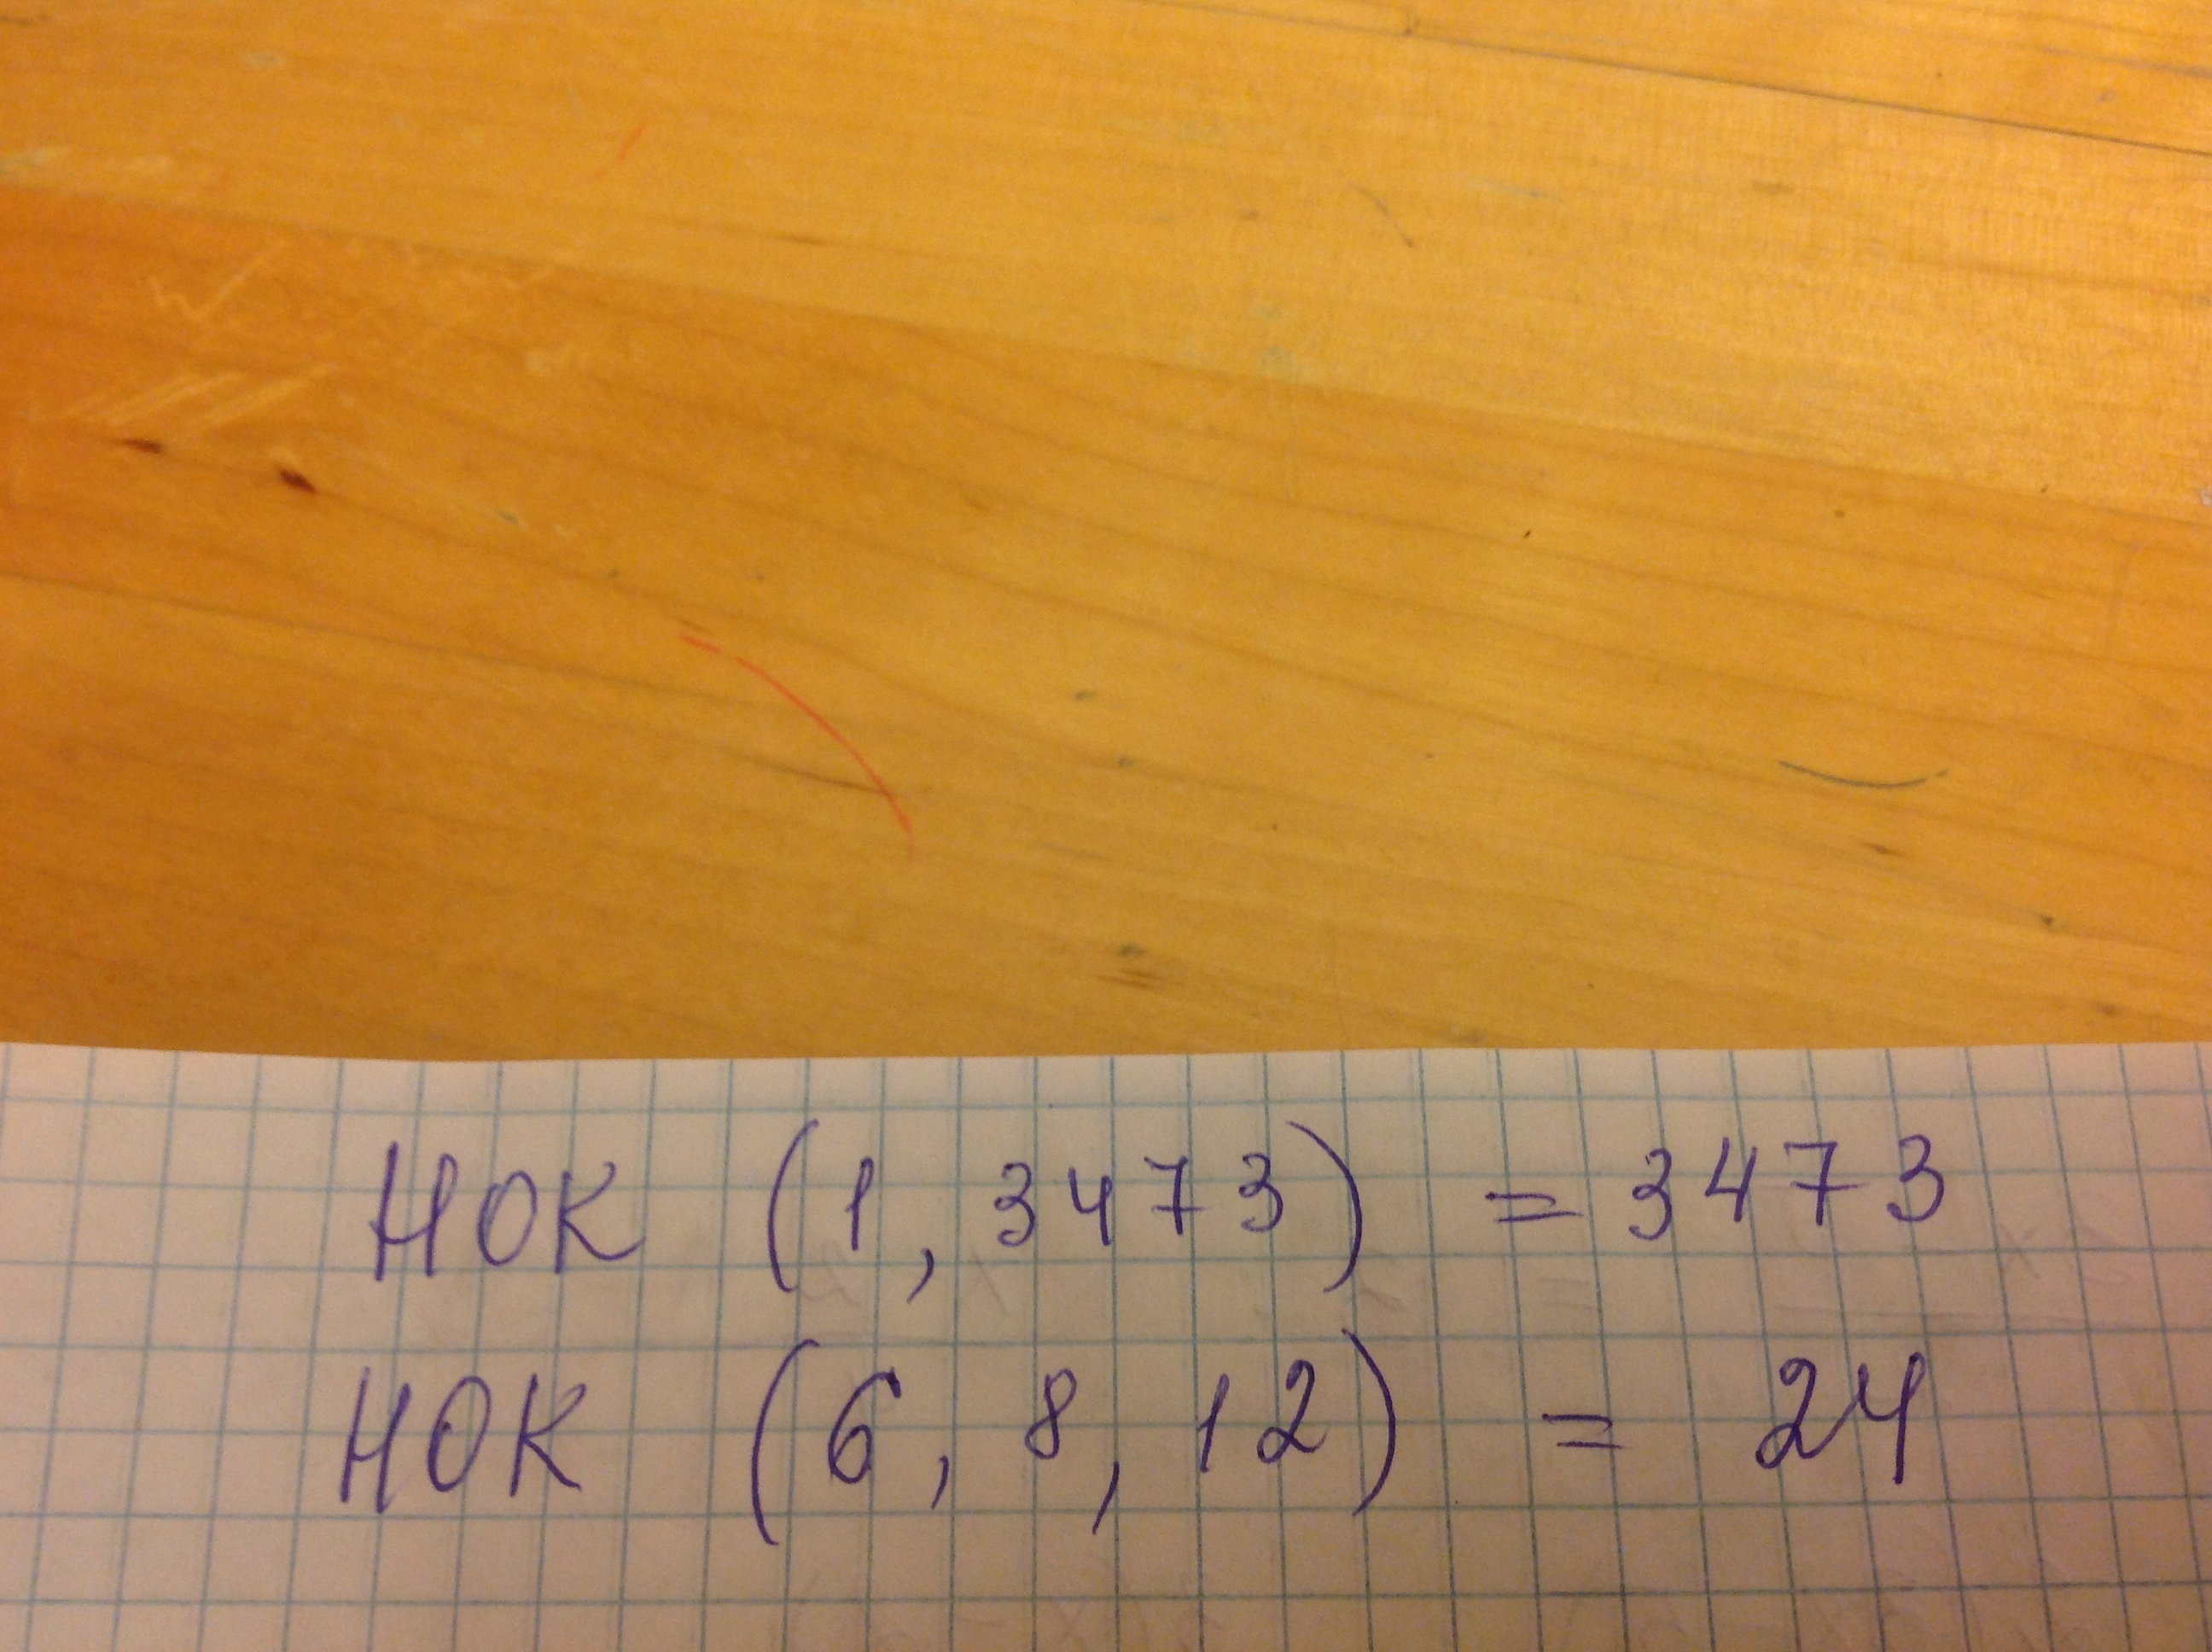 НОК (1, 3473) = 3473
НОК (6, 8, 12) = 24